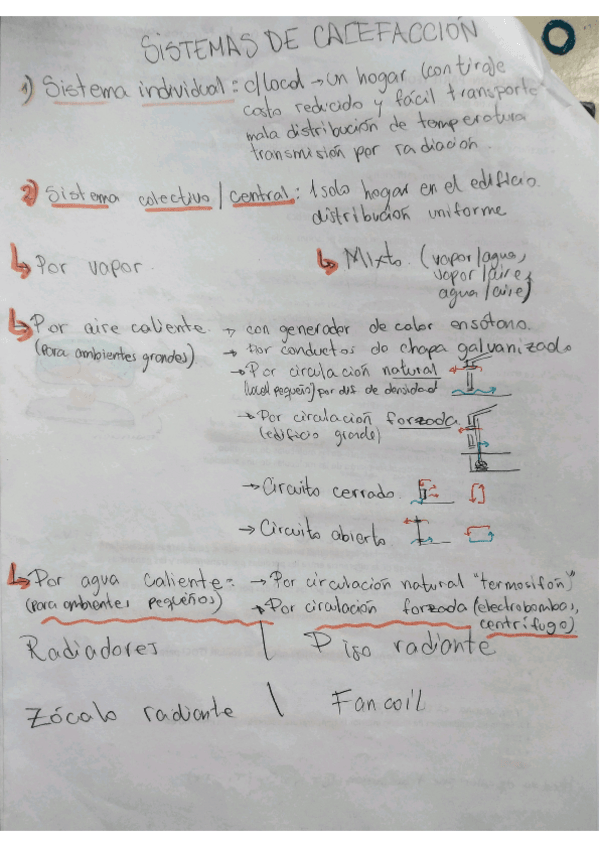 SISTEMAS DE CALEFACCIÓN
1) Sistema individual: c/local → un hogar (con tiraje
costo reducido y fácil transporte
mala distribución de temperatura
transmisión por radiación.
2) Sistema colectivo/central: 1 solo hogar en el edificio.
distribución uniforme
↳ Por vapor.
↳ Mixto. (vapor/agua,
vapor/aire,
agua/aire)
↳ Por aire caliente. → con generador de calor en sótano.
(para ambientes grandes) → Por conductos do chapa galvanizado
→ Por circulación natural
(local pequeño) por dif. de densidad
→ Por circulación forzada.
(edificio grande)
→ Circuito cerrado.
→ Circuito abierto.
↳ Por agua caliente: → Por circulación natural "termosifón"
(para ambientes pequeños) → Por circulación forzada (electrobombas,
centrífugo)
Radiadores Piso radiante
Zócalo radiante Fancoil